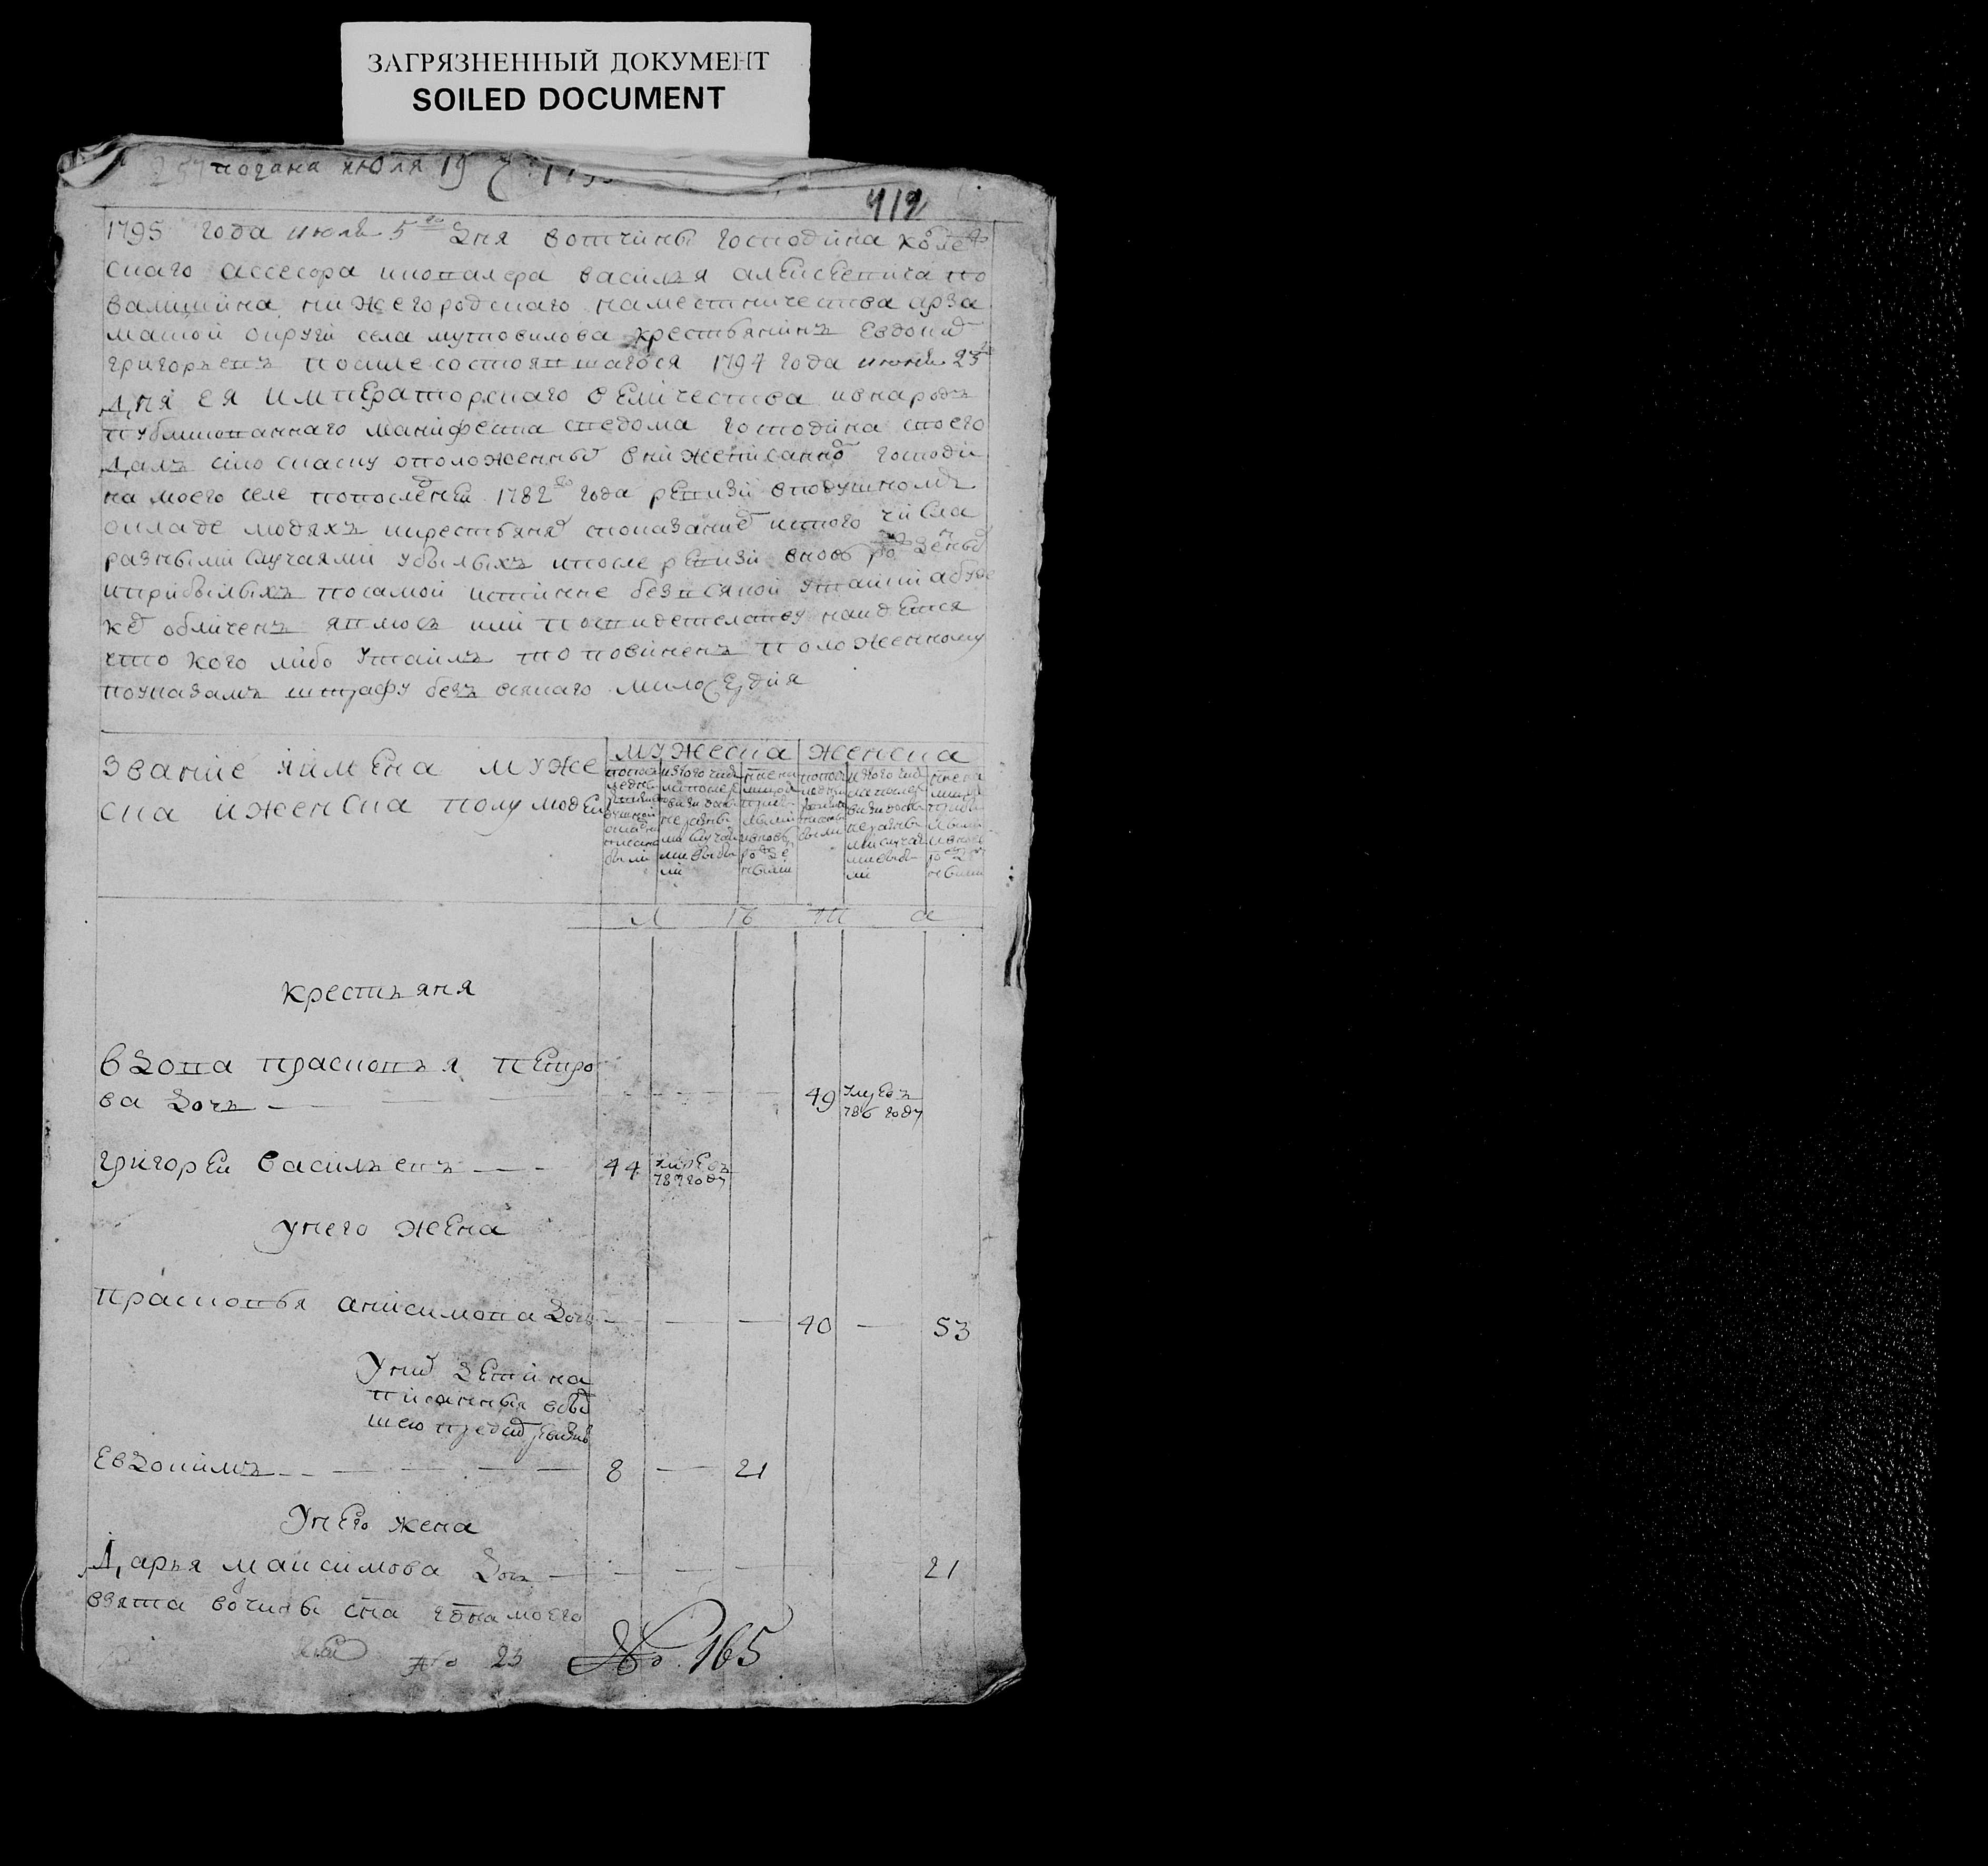 ЗАГРЯЗНЕННЫЙ ДОКУМЕНТ
SOILED DOCUMENT
подана июля 19
412
1795 года июля 5 го дня вотчины господина колеж
скаго ассесора икавалера василья алексеевича по
валишина нижегородскаго наместничества арза
мацкой округи села мутовилова крестьянинъ Евдоким
григорьевъ после состоявшагося 1794 года июня 23 го
Дня ея императорскаго величества ивнародъ
публикованнаго манифеста сведома господина своего
Далъ сию скаску оположенных внижеписанном господи
на моего селе попоследней 1782 го года ревизи вподушномъ
окладе людяхъ икрестьянех споказанием истого числа
разными случаями убылыхъ ипосле ревизи вновь рожденых
иприбылыхъ посамой истинне безвсякой утайки абуде
кем обличенъ явлюсь или посвидетельству найдется
что кого либо утаилъ то повиненъ положенному
поуказамъ штрафу безъ всякаго милосердия
Звание иимена муже
ска иженска полу людей
мужеска женска
попос изтого чис ныне на попос изтого чис ныне на
м п ш а
крестьяня
вдова прасковья петро
ва дочь 49 умре въ
786 году
григорей васильевъ 44 умре въ
787 году
унего жена
прасковья анисимова дочь 40 53
Уних дети на
писанныя
Евдокимъ 8 21
Унего жена
Дарья максимова дочь 21
взята вотчины
№ 23 № 165